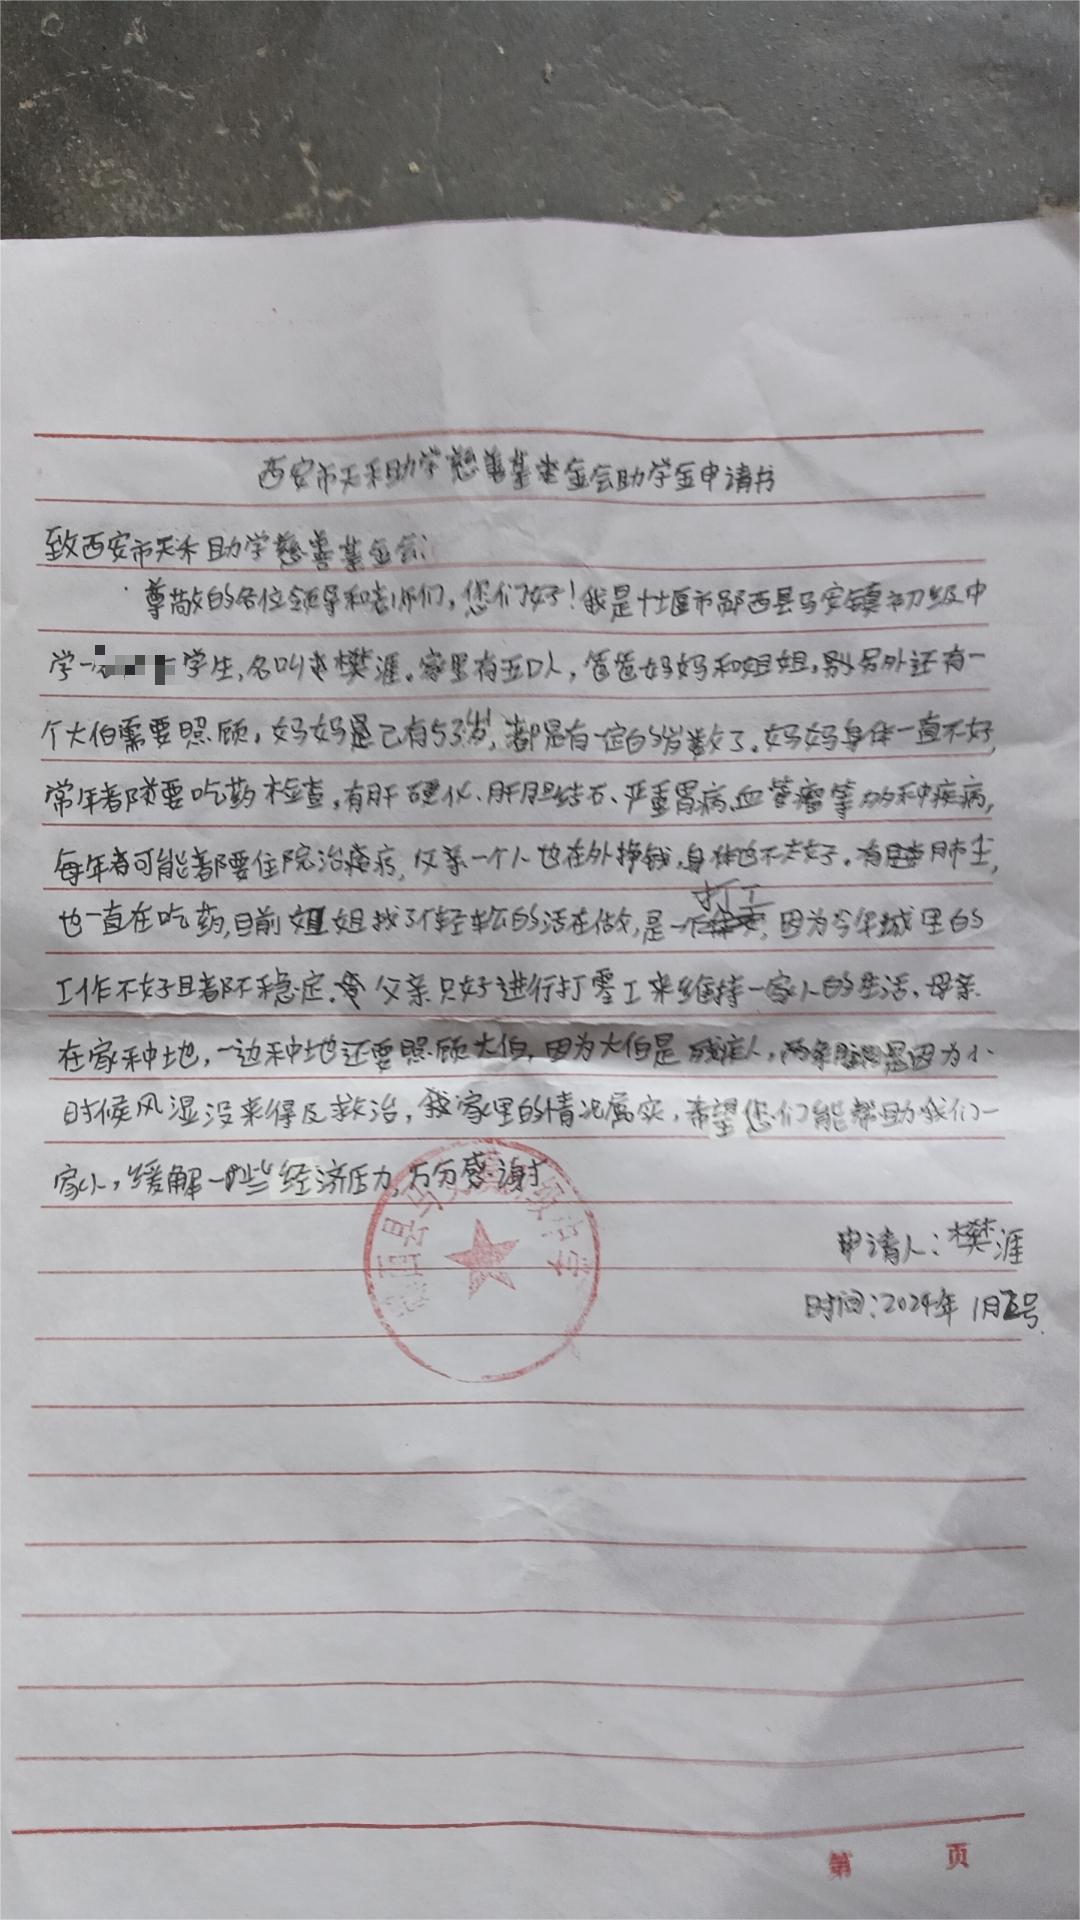 西安市天禾助学慈善基金会助学金申请书
致西安市天禾助学慈善基金会:
尊敬的各位领导和老师们,您们好!我是十堰市郧西县马安镇初级中
学一 学生,名叫樊涯。家里有五口人,爸爸妈妈和姐姐,另外还有一
个大伯需要照顾,妈妈是已有53岁,都是有一定的岁数了。妈妈身体一直不好,
常年都要吃药检查,有肝硬化、肝胆结石、严重胃病、血管瘤等多种疾病,
每年都可能都要住院治疗,父亲一个人也在外挣钱,身体也不太好。有肺
也一直在吃药,目前姐姐找了个轻松的活在做,是一个打工,因为今年城里的
工作不好且都不稳定。父亲只好进行打零工来维持一家人的生活,母亲
在家种地,一边种地还要照顾大伯,因为大伯是残疾人,两条腿是因为小
时候风湿没来得及救治,我家里的情况属实,希望您们能帮助我们一
家人,缓解一些经济压力,万分感谢
申请人:樊涯
时间:2024年1月 号.
西县马安镇初级中学
第 页